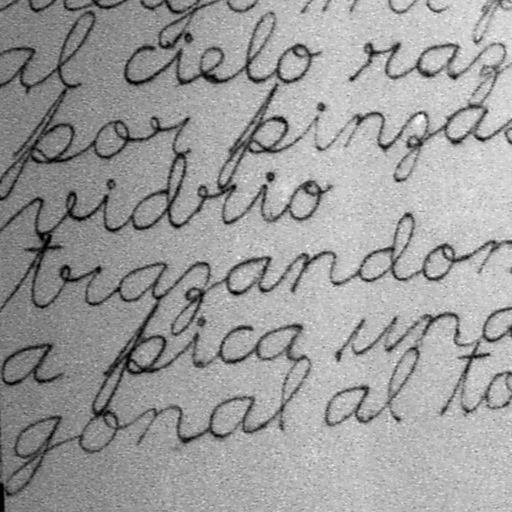 al cielo raz
por pinzas
vidrio
trazandon
a pica una
gonal al to